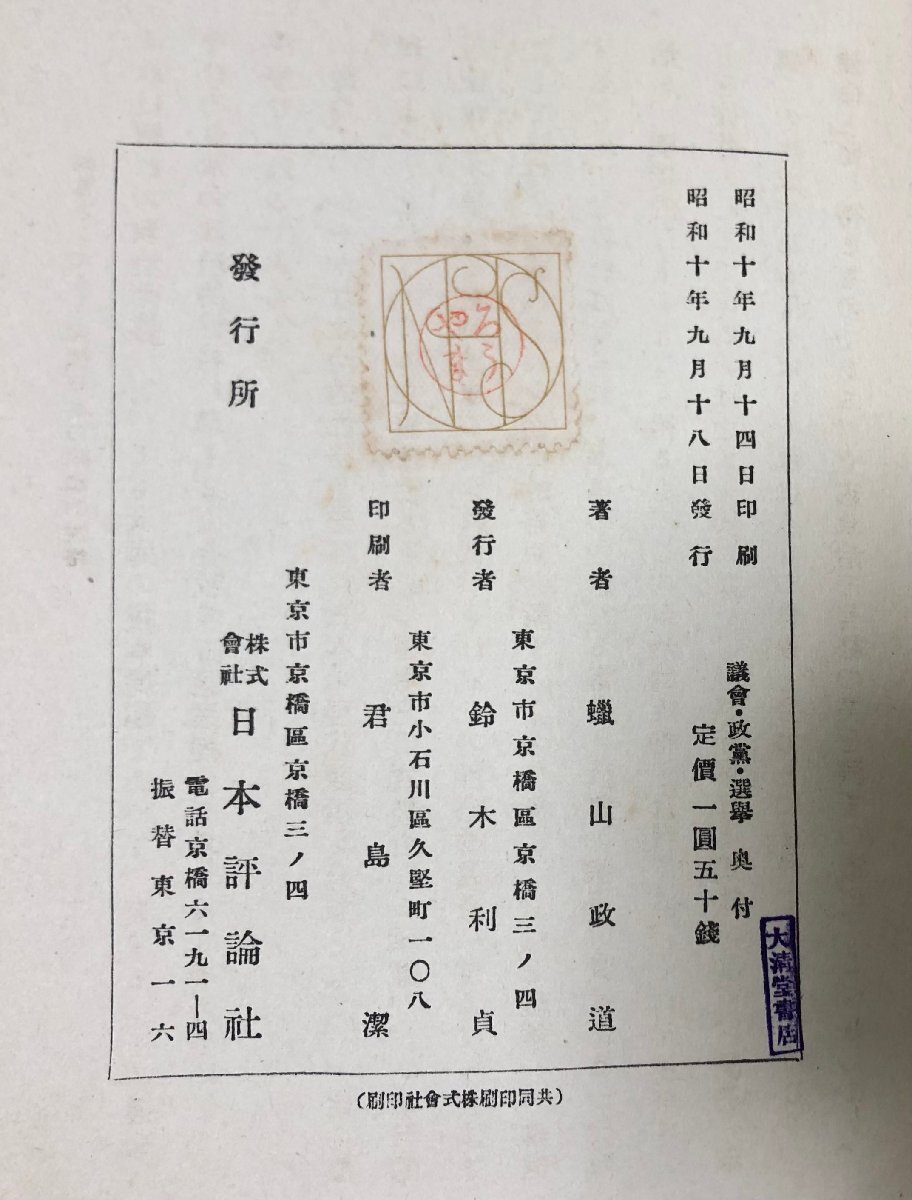 昭和十年九月十四日印刷
昭和十年九月十八日發行
議會・政黨・選擧 奥付
定價一圓五十錢
著者 蠟山政道
東京市京橋區京橋三ノ四
發行者 鈴木利貞
東京市小石川區久堅町一〇八
印刷者 君島潔
東京市京橋區京橋三ノ四
發行所 株式會社 日本評論社
電話京橋六一九一―四
振替東京一六
(共同印刷株式會社印刷)
大清堂書店